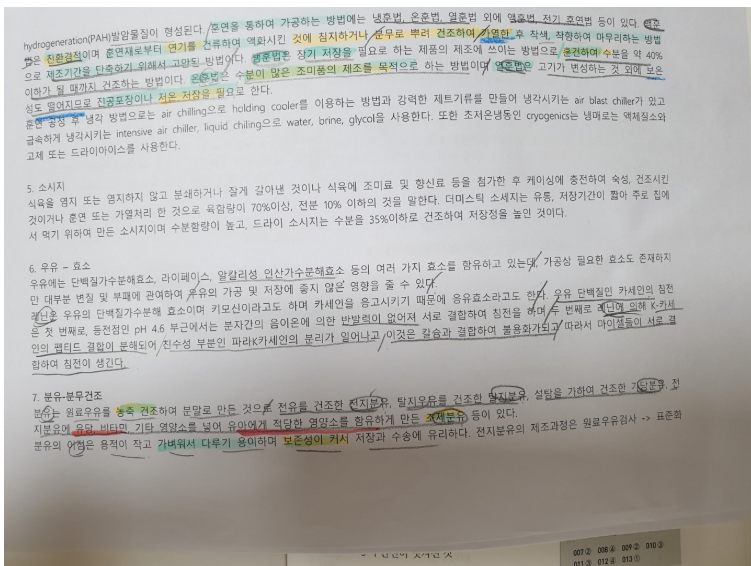 hydrogeneration(PAH)발암물질이 형성된다. 훈연을 통하여 가공하는 방법에는 냉훈법, 온훈법, 열훈법 외에 액훈법, 전기 훈연법 등이 있다. 액훈
법은 친환경적이며 훈연재로부터 연기를 건류하여 액화시킨 것에 침지하거나 분무로 뿌려 건조하여 가열한 후 착색, 착향하여 마무리하는 방법
으로 제조기간을 단축하기 위해서 고안된 방법이다. 냉훈법은 장기 저장을 필요로 하는 제품의 제조에 쓰이는 방법으로 훈건하여 수분을 약 40%
이하가 될 때까지 건조하는 방법이다. 온훈법은 수분이 많은 조미품의 제조를 목적으로 하는 방법이며 열훈법은 고기가 변성하는 것 외에 보존
성도 떨어지므로 진공포장이나 저온 저장을 필요로 한다.
훈연 공정 후 냉각 방법으로는 air chilling으로 holding cooler를 이용하는 방법과 강력한 제트기류를 만들어 냉각시키는 air blast chiller가 있고
급속하게 냉각시키는 intensive air chiller, liquid chiling으로 water, brine, glycol을 사용한다. 또한 초저온냉동인 cryogenics는 냉매로는 액체질소와
고체 또는 드라이아이스를 사용한다.
5. 소시지
식육을 염지 또는 염지하지 않고 분쇄하거나 잘게 갈아낸 것이나 식육에 조미료 및 향신료 등을 첨가한 후 케이싱에 충전하여 숙성, 건조시킨
것이거나 훈연 또는 가열처리 한 것으로 육함량이 70%이상, 전분 10% 이하의 것을 말한다. 더미스틱 소세지는 유통, 저장기간이 짧아 주로 집에
서 먹기 위하여 만든 소시지이며 수분함량이 높고, 드라이 소시지는 수분을 35%이하로 건조하여 저장정을 높인 것이다.
6. 우유 – 효소
우유에는 단백질가수분해효소, 라이페이스, 알칼리성 인산가수분해효소 등의 여러 가지 효소를 함유하고 있는데, 가공상 필요한 효소도 존재하지
만 대부분 변질 및 부패에 관여하여 우유의 가공 및 저장에 좋지 않은 영향을 줄 수 있다.
레닌은 우유의 단백질가수분해 효소이며 키모신이라고도 하며 카세인을 응고시키기 때문에 응유효소라고도 한다. 우유 단백질인 카세인의 침전
은 첫 번째로, 등전점인 pH 4.6 부근에서는 분자간의 음이온에 의한 반발력이 없어져 서로 결합하여 침전을 하며 두 번째로 레닌에 의해 K-카세
인의 펩티드 결합이 분해되어 친수성 부분인 파라K카세인의 분리가 일어나고 이것은 칼슘과 결합하여 불용화가되고 따라서 마이셀들이 서로 결
합하여 침전이 생긴다.
7. 분유-분무건조
분유는 원료우유를 농축 건조하여 분말로 만든 것으로 전유를 건조한 전지분유, 탈지우유를 건조한 탈지분유, 설탕을 가하여 건조한 가당분유, 전
지분유에 유당, 비타민, 기타 영양소를 넣어 유아에게 적당한 영양소를 함유하게 만든 조제분유 등이 있다.
분유의 이점은 용적이 작고 가벼워서 다루기 용이하며 보존성이 커서 저장과 수송에 유리하다. 전지분유의 제조과정은 원료우유검사 -> 표준화
007② 008④ 009② 010③
011③ 012④ 013①